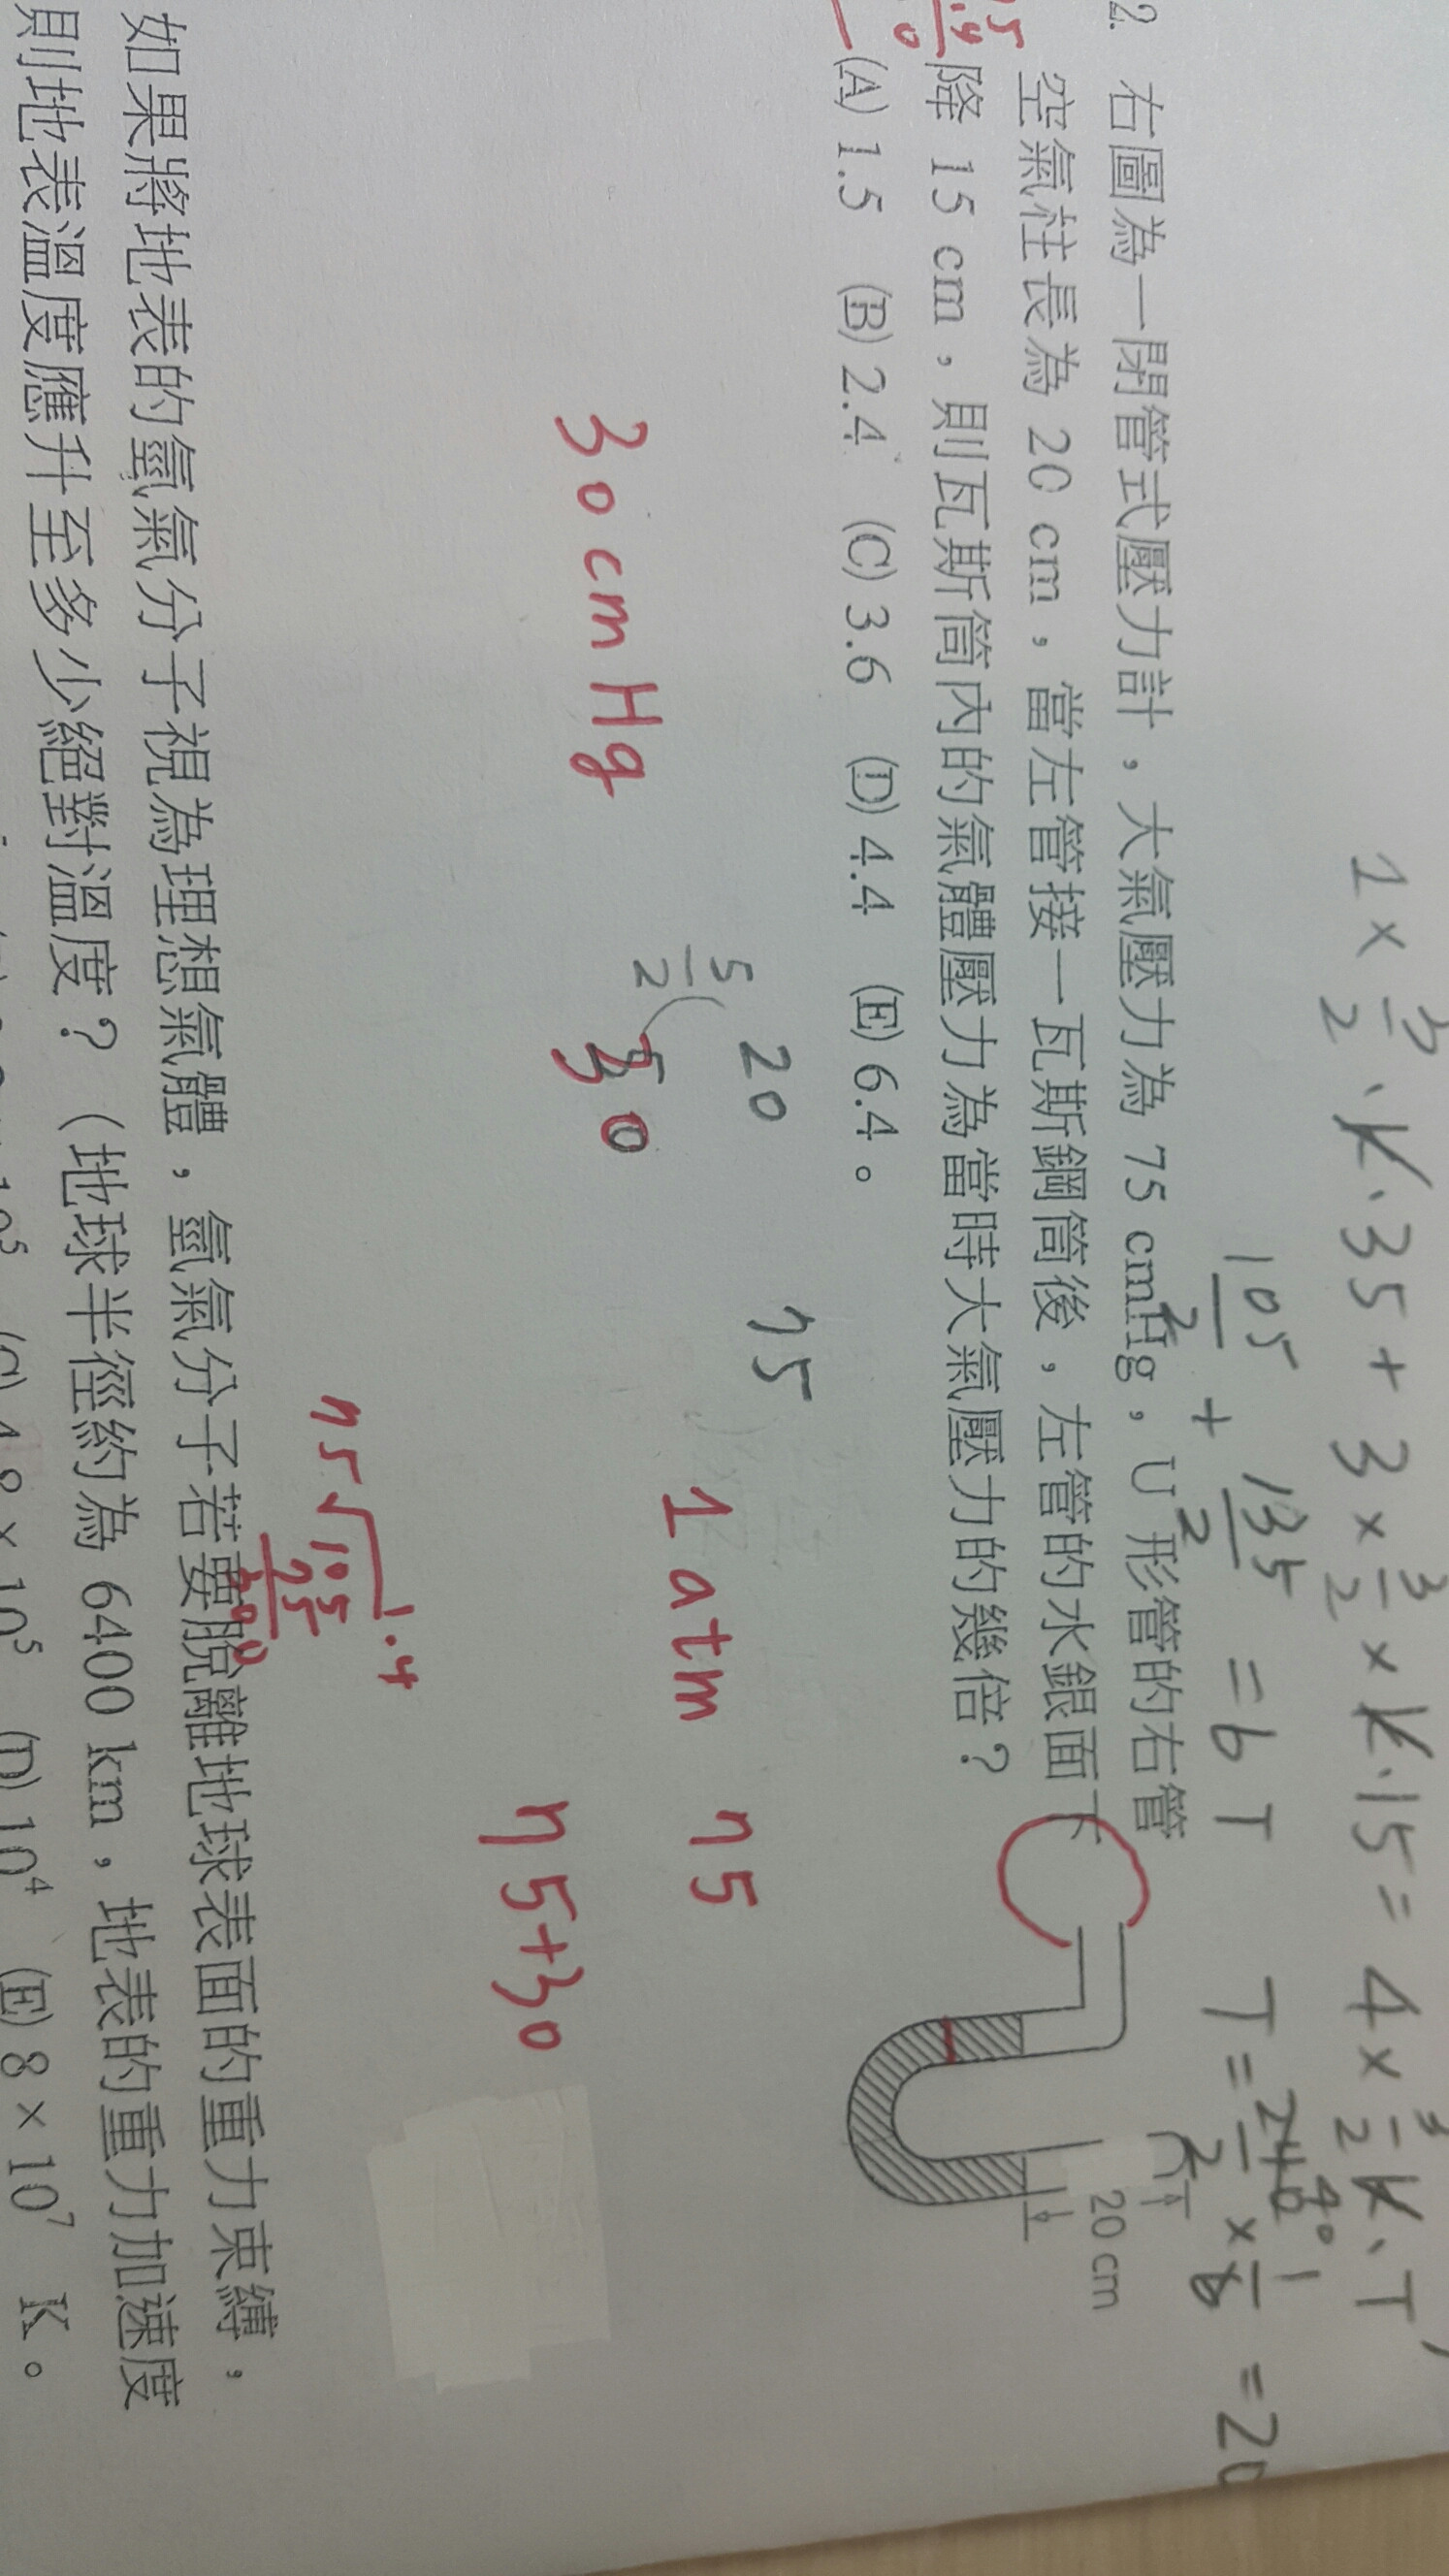 1 × 3/2 · k · 35 + 3 × 3/2 × k · 15 = 4 × 3/2 k · T
105/2 + 135/2 = 6T T = 240/2 × 1/6 = 20
2. 右圖為一閉管式壓力計，大氣壓力為 75 cmHg，U 形管的右管
空氣柱長為 20 cm，當左管接一瓦斯鋼筒後，左管的水銀面下
降 15 cm，則瓦斯筒內的氣體壓力為當時大氣壓力的幾倍？
(A) 1.5 (B) 2.4 (C) 3.6 (D) 4.4 (E) 6.4。
20 cm
20 75
5/2
1 atm 75
30 cm Hg 30 75+30
1.4
75 105
如果將地表的氫氣分子視為理想氣體，氫氣分子若要脫離地球表面的重力束縛，
則地表溫度應升至多少絕對溫度？（地球半徑約為 6400 km，地表的重力加速度
10⁵ (D) 10⁴ (E) 8 × 10⁷ K。